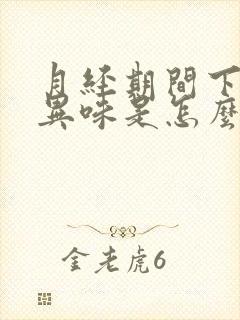 月经期間下
異味是怎麼
金老虎6